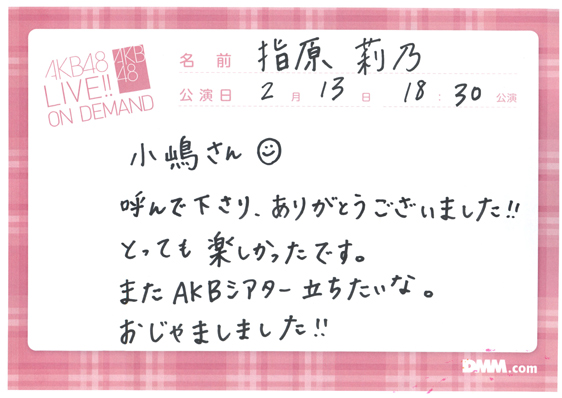 AKB48
LIVE!!
ON DEMAND
AKB
48
名前 指原 莉乃
公演日 2月 13日 18:30 公演
小嶋さん☺
呼んで下さり、ありがとうございました!!
とっても楽しかったです。
またAKBシアター立ちたいな。
おじゃましました!!
DMM.com